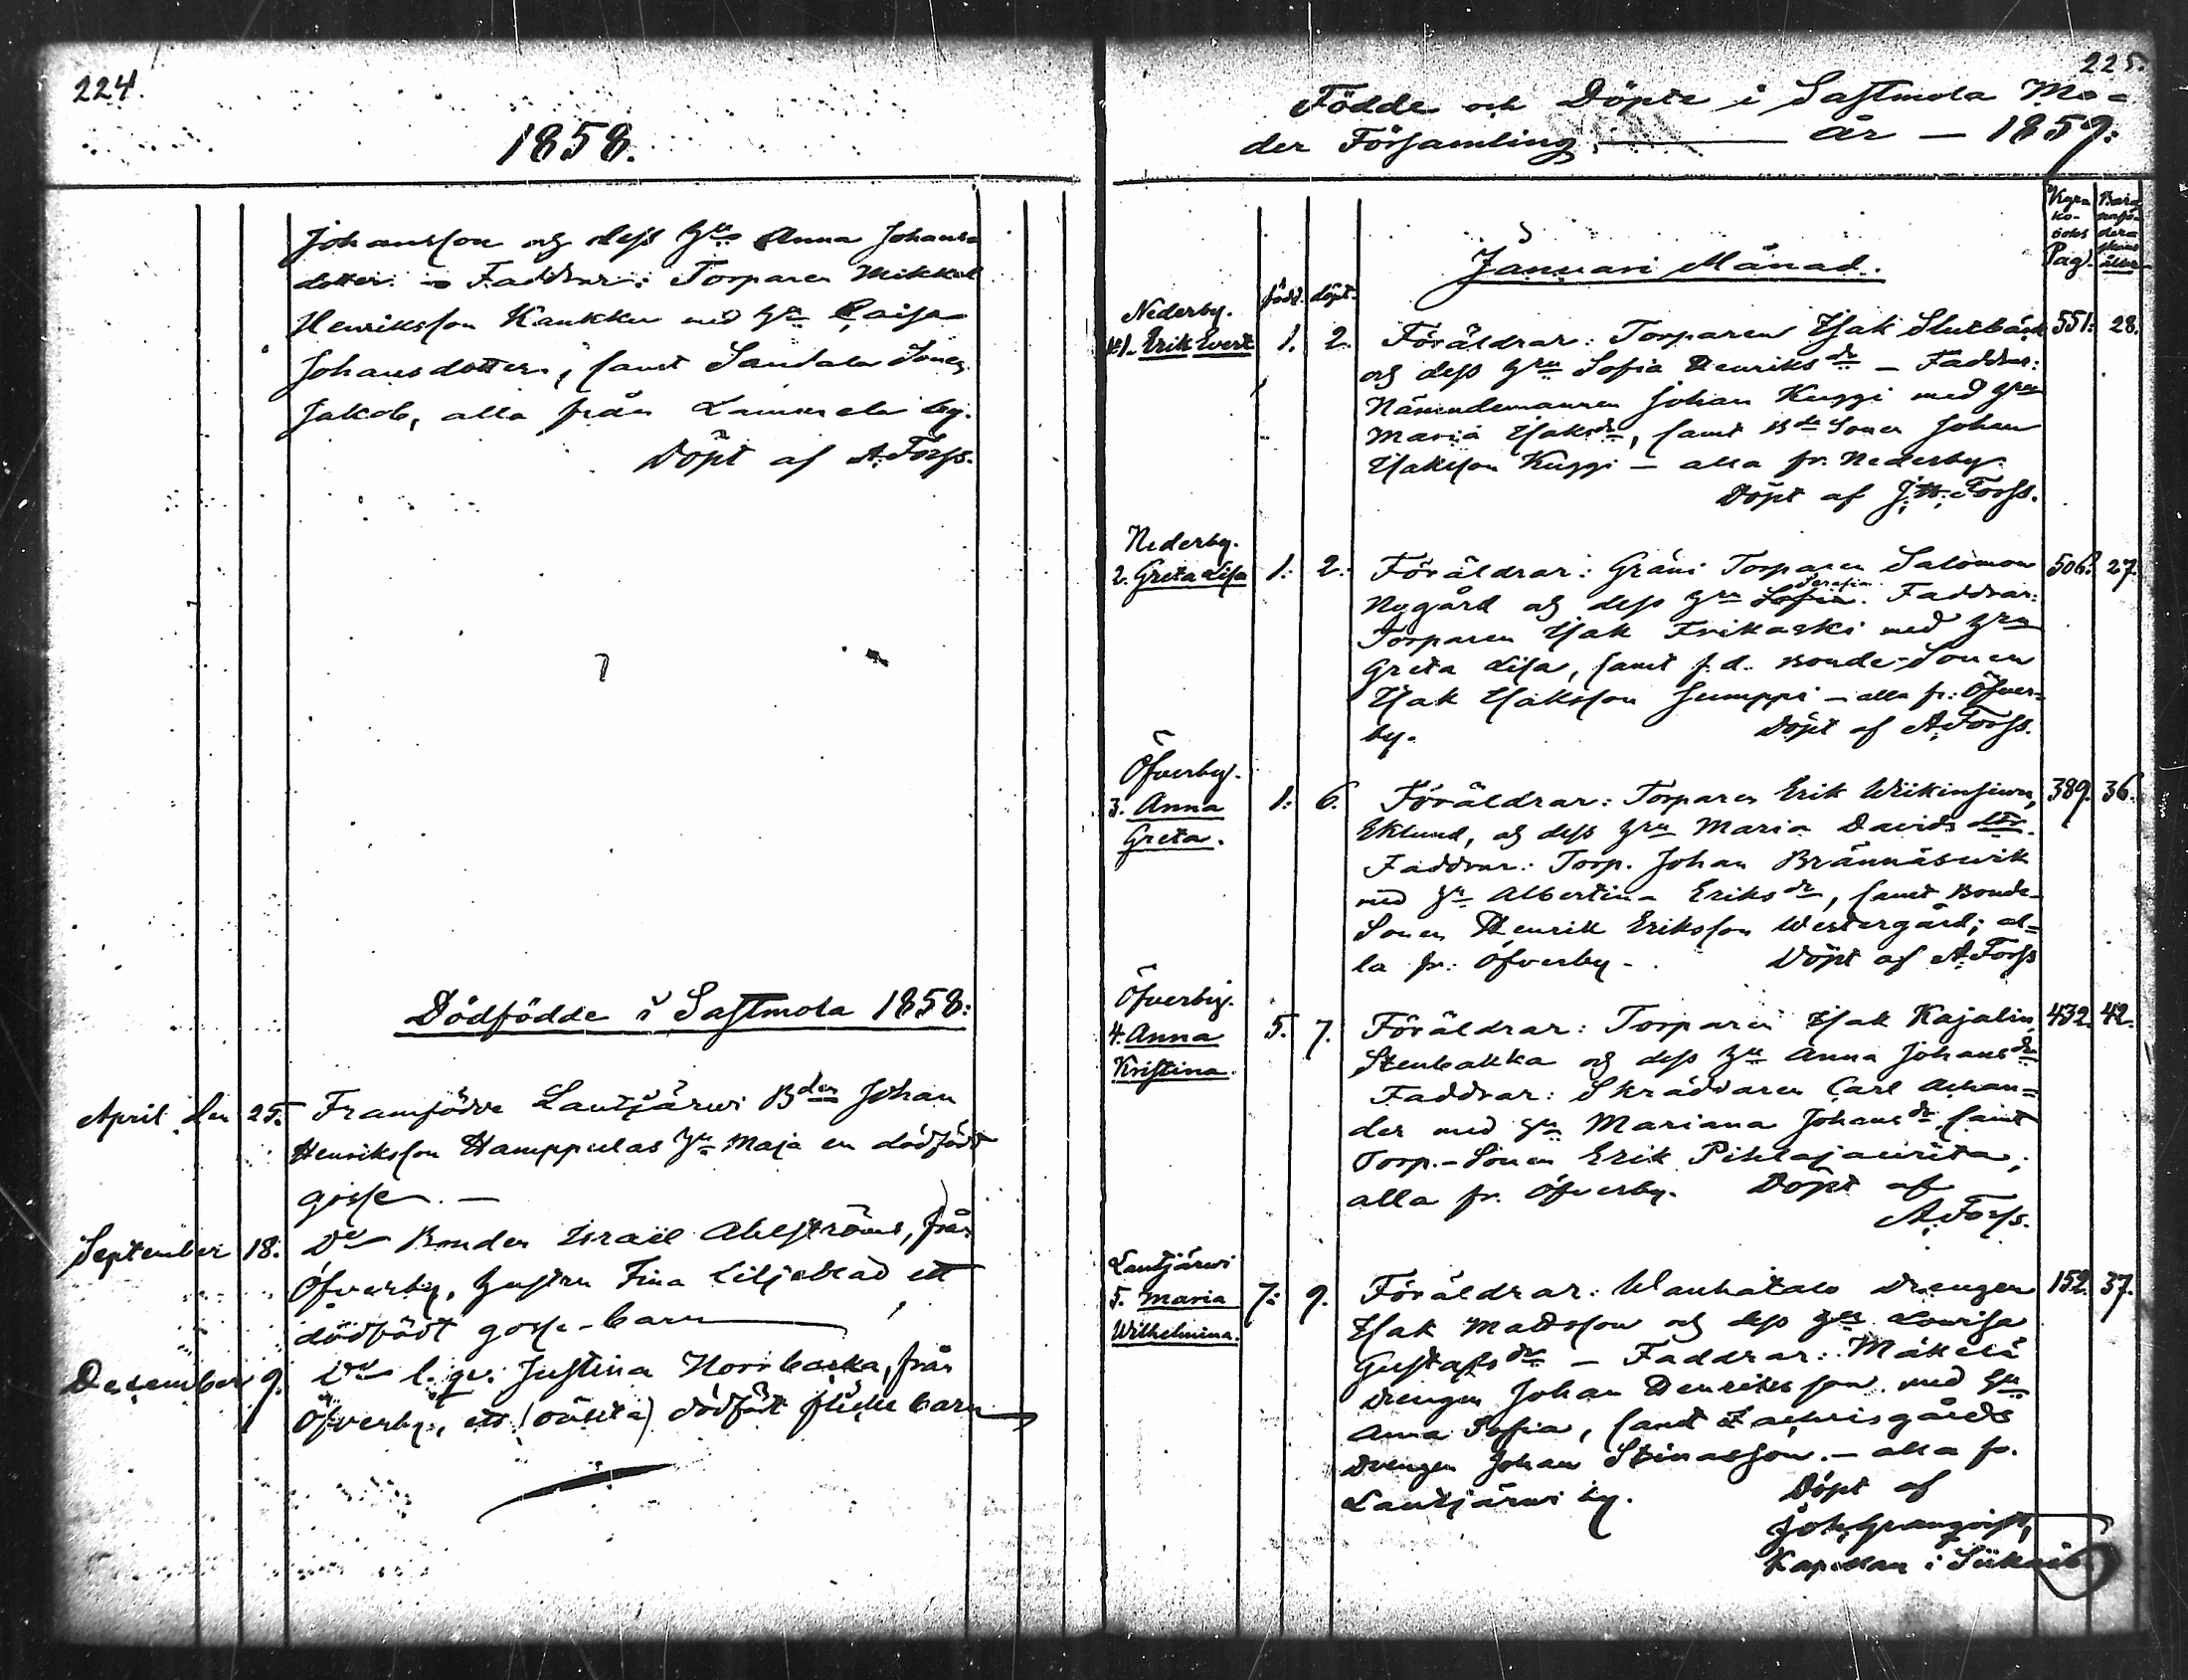 224.
1858.
Johansson och dess hu Anna Johans
dotter. — Faddrar: Torparen Mikkel
Henriksson Kaukku med hu Caisa
Johansdotter, samt Sandala Sonen
Jakob, alla från Lammela by.
Döpt af A. Forss.
Dödfödde i Sastmola 1858:
April den 25. Framfödde Lautjärwi Bden Johan
Henriksson Hamppulas hu Maja en dödfödt
gosse. —
September 18. Do Bonden Israël Ahlströms, från
Öfverby, hustru Fina Liljeblad ett
dödfödt gosse-barn
December 9. Do l. qv. Justina Norrbacka, från
Öfverby, ett (oäkta) dödfödt flicke barn
225.
Födde och Döpte i Sastmola Mo-
der Församling — år — 1859:
Kyrko-
boks
Pag.
Januari Månad.
född. döpt.
Nederby.
1. Erik Evert 1. 2. Föräldrar: Torparen Isak Slutbäck 551. 28.
och dess hru Sofia Henriksdr — Faddrar:
Nämndemannen Johan Kuggi med hru
Maria Isaksdr, samt Bde Sonen Johan
Isaksson Kuggi — alla fr. Nederby.
Döpt af J. H. Forss.
Nederby.
2. Greta Lisa 1: 2: Föräldrar: Gräni Torparen Salomon 506. 27.
Serafia
Nygård och dess hru Sofia. Faddrar:
Torparen Isak Frikaski med hru
Greta Lisa, samt f.d. Bonde-Sonen
Isak Isaksson Gumppi — alla fr: Öfver-
by. Döpt af A. Forss.
Öfverby.
3. Anna 1: 6. Föräldrar: Torparen Erik Wiikinsiwu, 389. 36.
Greta. Eklund, och dess hru Maria Davids dtr.
Faddrar: Torp. Johan Brännäswik
med hu Albertina Eriksdr, samt Bonde-
Sonen Henrik Eriksson Westergård; al-
la fr: Öfverby. Döpt af A. Forss
Öfverby.
4. Anna 5. 7. Föräldrar: Torparen Isak Kajalin, 432. 42.
Kristina. Stenbakka och dess hu Anna Johansdr
Faddrar: Skräddaren Carl Achan-
der med hu Mariana Johansdr, samt
Torp.-Sonen Erik Pihlajaurita;
alla fr. Öfverby. Döpt af
A. Forss.
Lautjärwi
5. Maria 7: 9. Föräldrar: Wanhatalo Drengen 152. 37.
Wilhelmina. Isak Madsson och dess hu Lowisa
Gustafsdr — Faddrar: Mäkelä
Drengen Johan Henriksson med hu
Anna Sofia, samt Zachrisgårds
Drengen Johan Stinasson. — alla fr.
Lautjärwi by. Döpt af
Joh. Granqvist,
Kapellan i Siikais